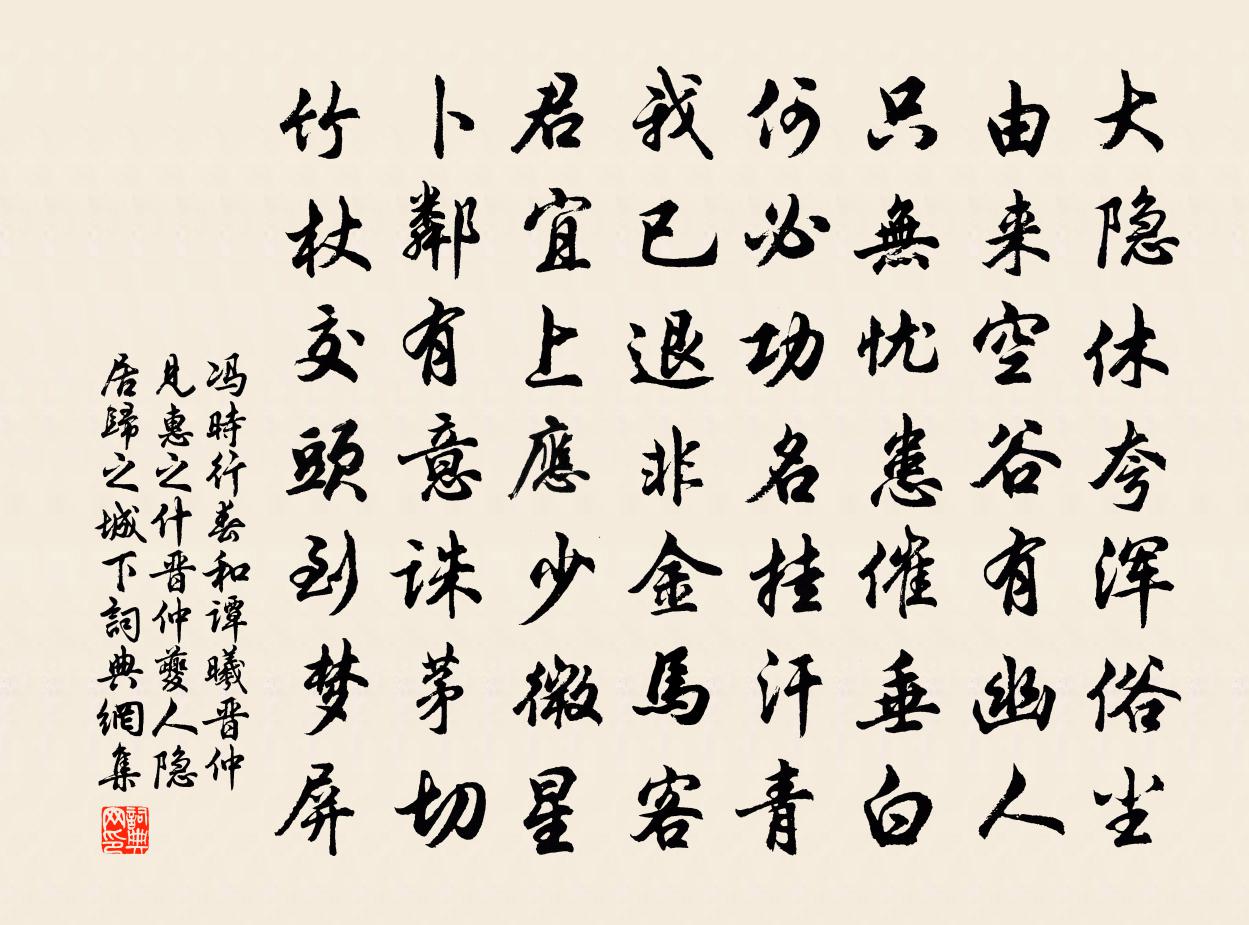 大隐休夸浑俗尘
由来空谷有幽人
只無忧患催垂白
何必功名挂汗青
我已退非金馬客
君宜上應少微星
卜鄰有意誅茅切
竹杖交頭到梦屏
冯時行春和谭曦晋仲
見惠之什晋仲夔人隐
居歸之城下詞典網集
詞典网印